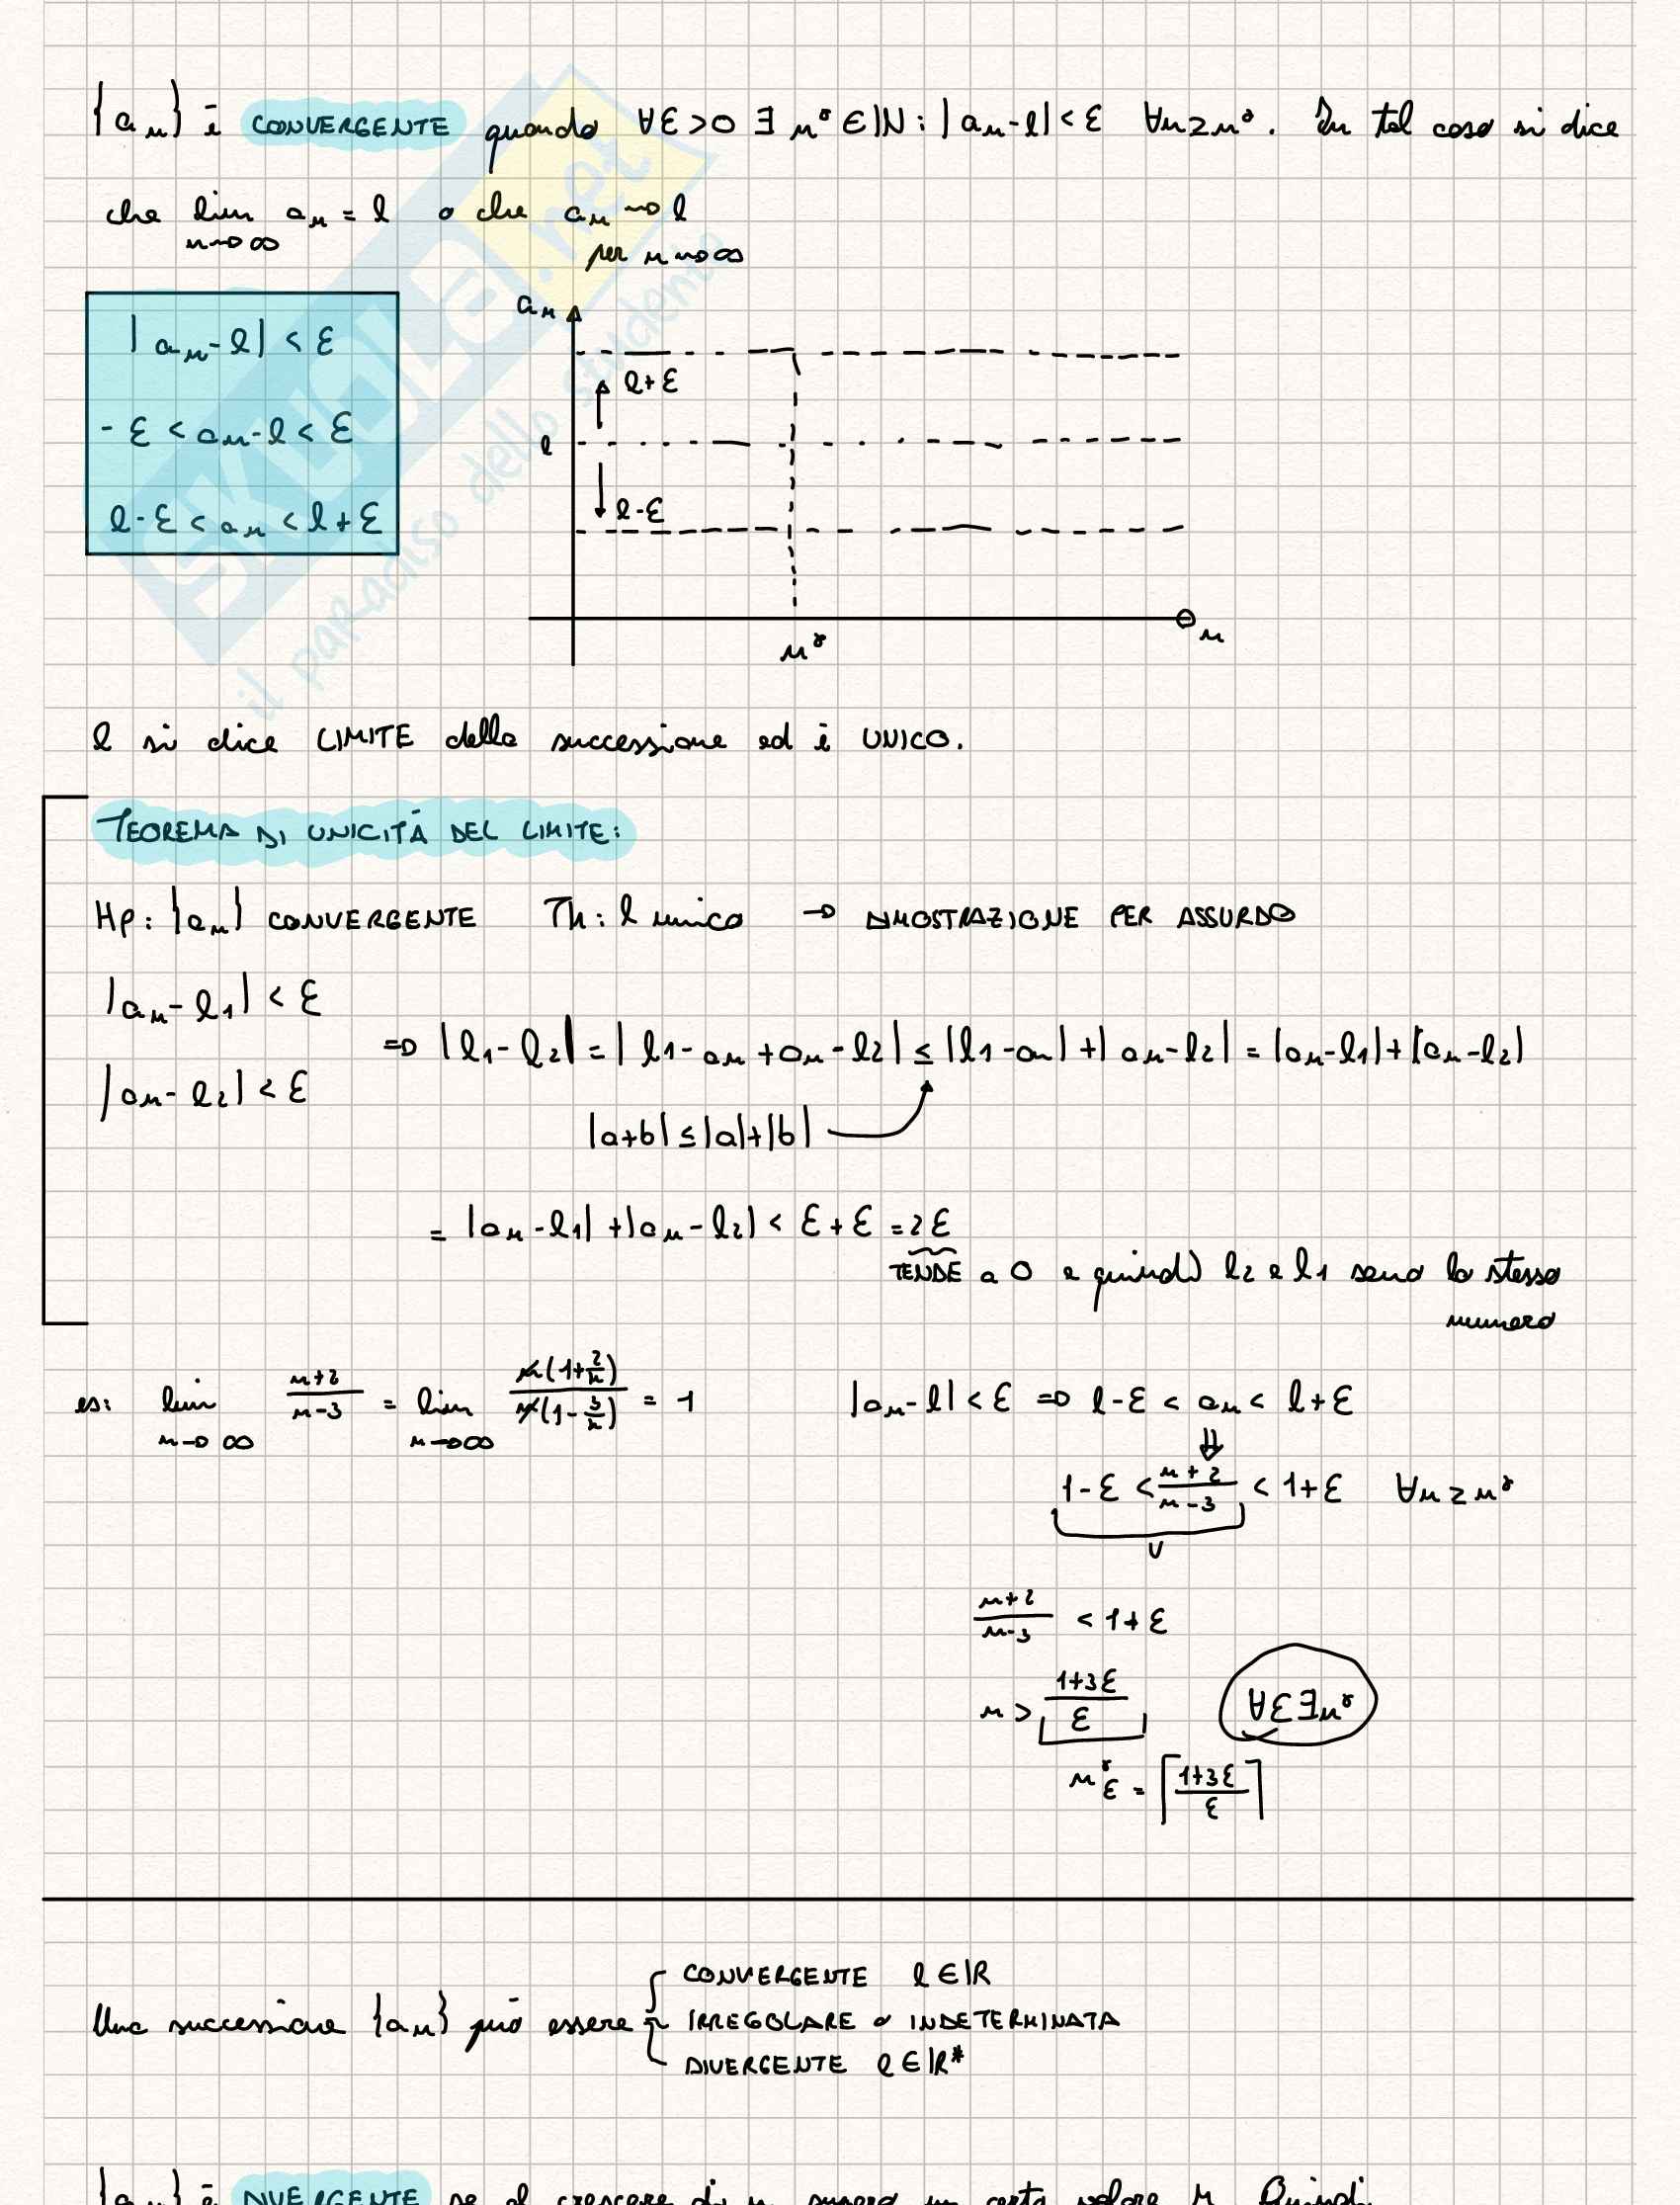 {aₙ} è CONVERGENTE quando ∀ε>0 ∃ n° ∈ ℕ : |aₙ-l| < ε ∀n≥n°. In tal caso si dice
che lim aₙ = l o che aₙ → l
n→∞ per n→∞
|aₙ-l| < ε
-ε < aₙ-l < ε
l-ε < aₙ < l+ε
aₙ
l+ε
l
l-ε
n°
n
l si dice LIMITE della successione ed è UNICO.
TEOREMA DI UNICITÀ DEL LIMITE:
Hp: {aₙ} CONVERGENTE Th: l unico → DIMOSTRAZIONE PER ASSURDO
|aₙ-l₁| < ε
⇒ |l₁-l₂| = |l₁-aₙ+aₙ-l₂| ≤ |l₁-aₙ|+|aₙ-l₂| = |aₙ-l₁|+|aₙ-l₂|
|aₙ-l₂| < ε
|a+b| ≤ |a|+|b|
= |aₙ-l₁|+|aₙ-l₂| < ε+ε = 2ε
TENDE a 0 e quindi l₂ e l₁ sono lo stesso
numero
es: lim n→∞ (n+2)/(n-3) = lim n→∞ n(1+2/n)/n(1-3/n) = 1
|aₙ-l| < ε ⇒ l-ε < aₙ < l+ε
⇓
1-ε < (n+2)/(n-3) < 1+ε ∀n≥n°
V
(n+2)/(n-3) < 1+ε
n > (1+3ε)/ε
∀ε∃n°
n°ε = ⌈(1+3ε)/ε⌉
Una successione {aₙ} può essere
CONVERGENTE l∈ℝ
IRREGOLARE o INDETERMINATA
DIVERGENTE l∈ℝ*
{aₙ} è DIVERGENTE se al crescere di n supera un certo valore M. Quindi
SKUOLA.net
il paradiso dello studente